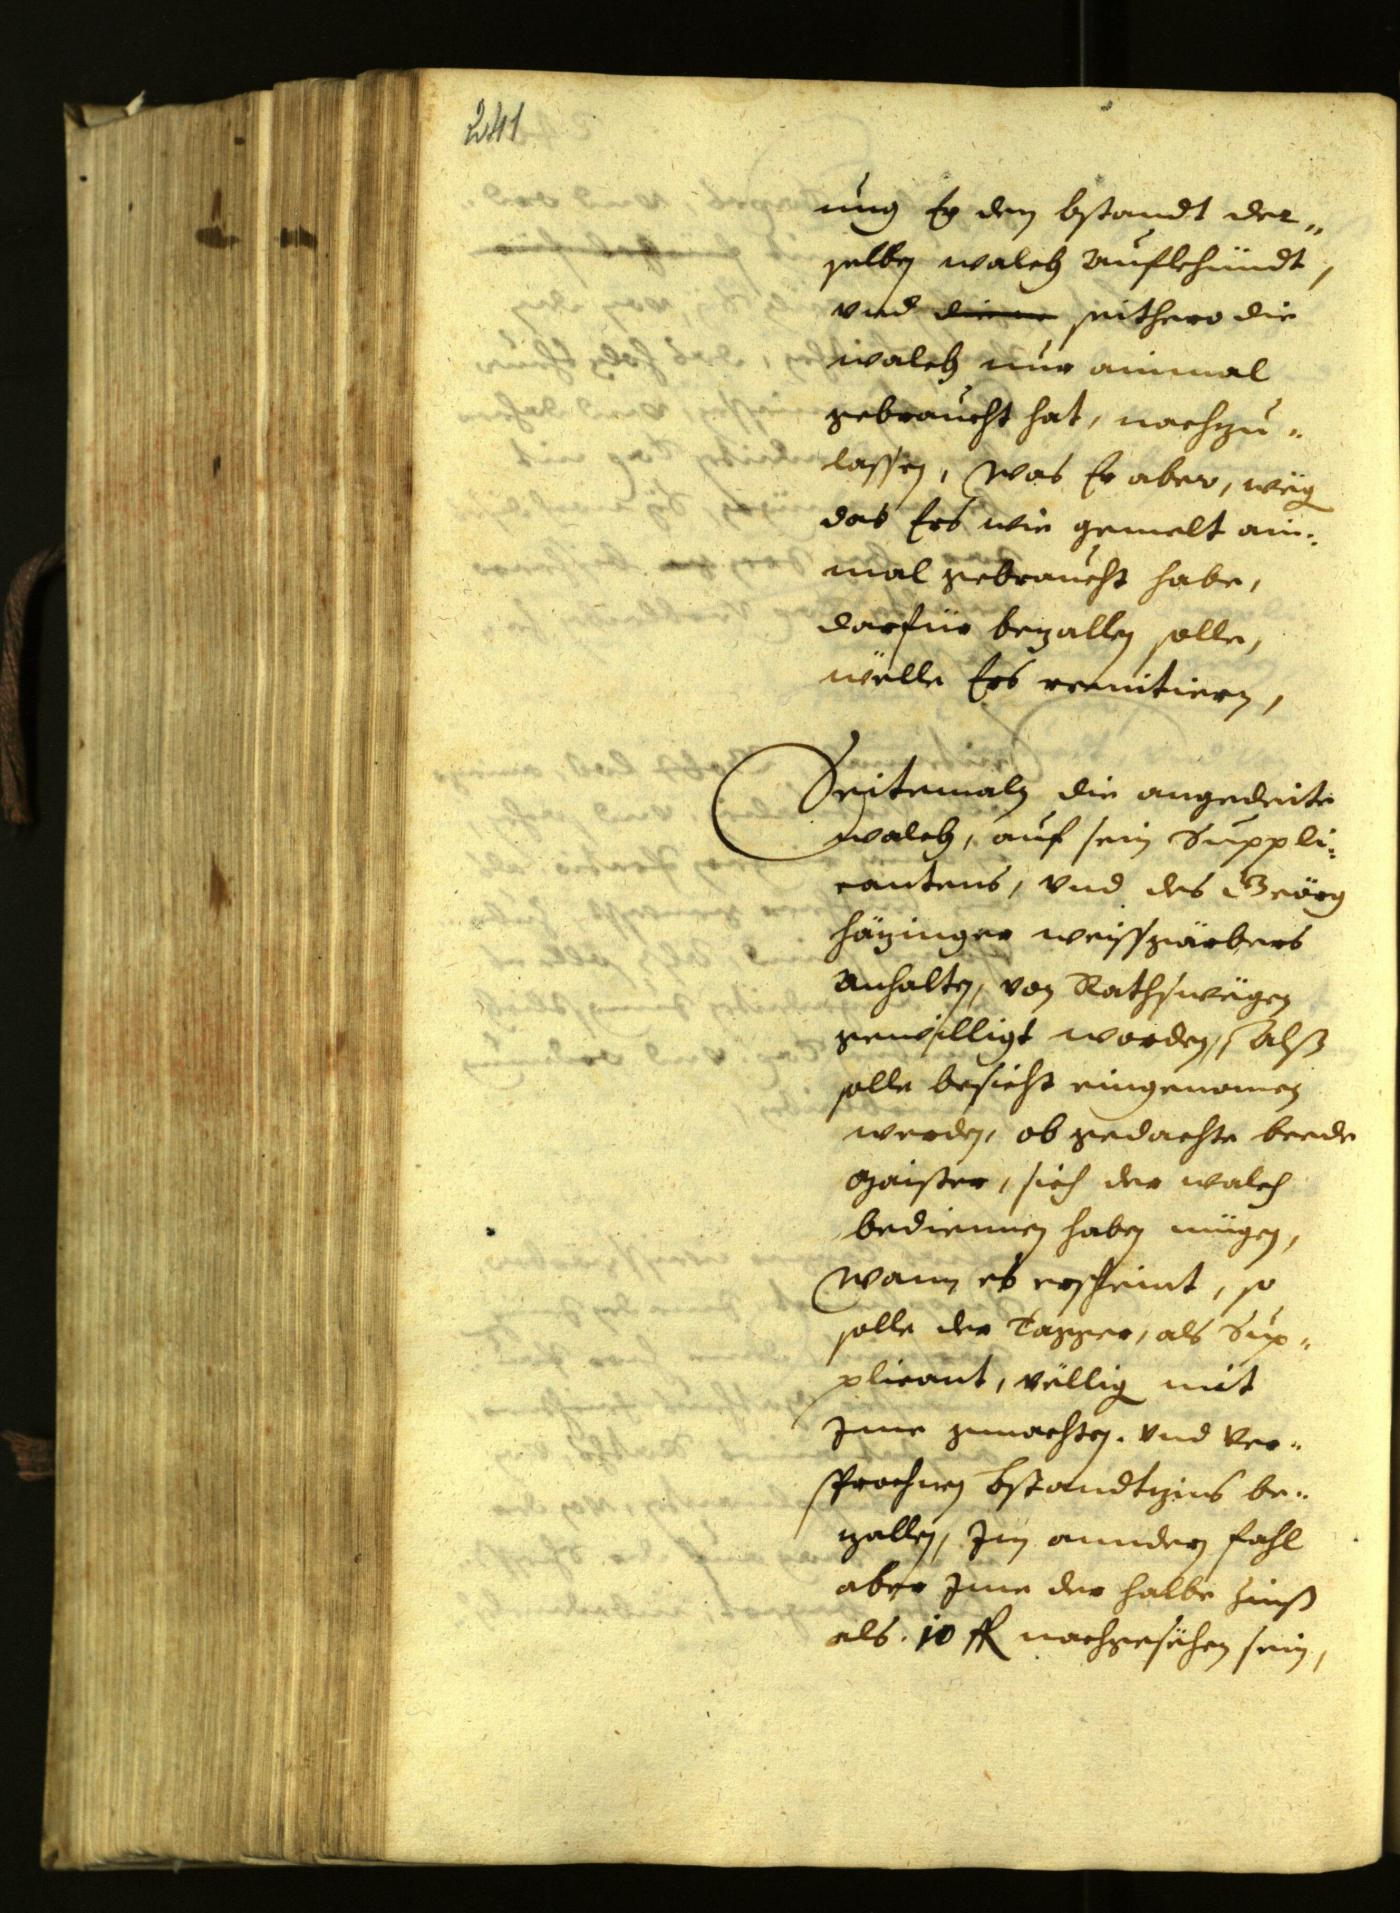 241
ung Er den bstandt der„
selben walch aufkhündt,
vnd seithero die
walch nur ainmal
gebraucht hat, nachzu„
lassen, Was Er aber, weg
das Ers wie gemelt ain„
mal gebraucht habe,
darfür bezallen solle,
wölle Ers remitiern,
Seitemaln die angedeite
walch, auf sein Suppli„
cantens, vnd des Geörg
häzinger weissgärbers
Anhalten, von Rathswegen
gewilligt worden, Alß
solle bericht eingenomen
werden, ob gedachte beede
Maister, sich der walch
bediennen haben mügen,
Wann es erscheint, so
solle der Tapper, als Sup„
plicant, völlig mit
Jme gemachten. vnd Ver„
sprochnen bstandtzins be„
zallen, Jm anndern fahl
aber Jme der halbe Zinß
als. 10 fl nachgesehen sein,